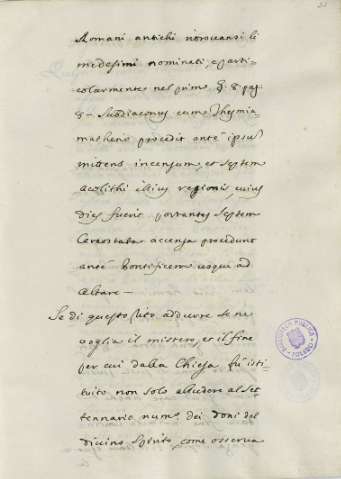 Romani antichi ritrovansi li
medesimi nominati, e parti-
colarmente nel primo §. 8 pag.
8 - Subdiaconus cum Thymia-
materio procedit ante ipsum
mittens incensum, et septem
Acolithi illius regionis, cuius
dies fuerit portantes septem
Cereostata accensa procedunt
ante Pontificem usque ad
Altare -
Se di questo Rito addurre se ne
voglia il mistero, et il fine
per cui dalla Chiesa fu isti-
tuito non solo alludere al Set-
tennario num.o dei doni del
divino Spirito, come osserva
BIBLIOTECA PUBLICA
TOLEDO